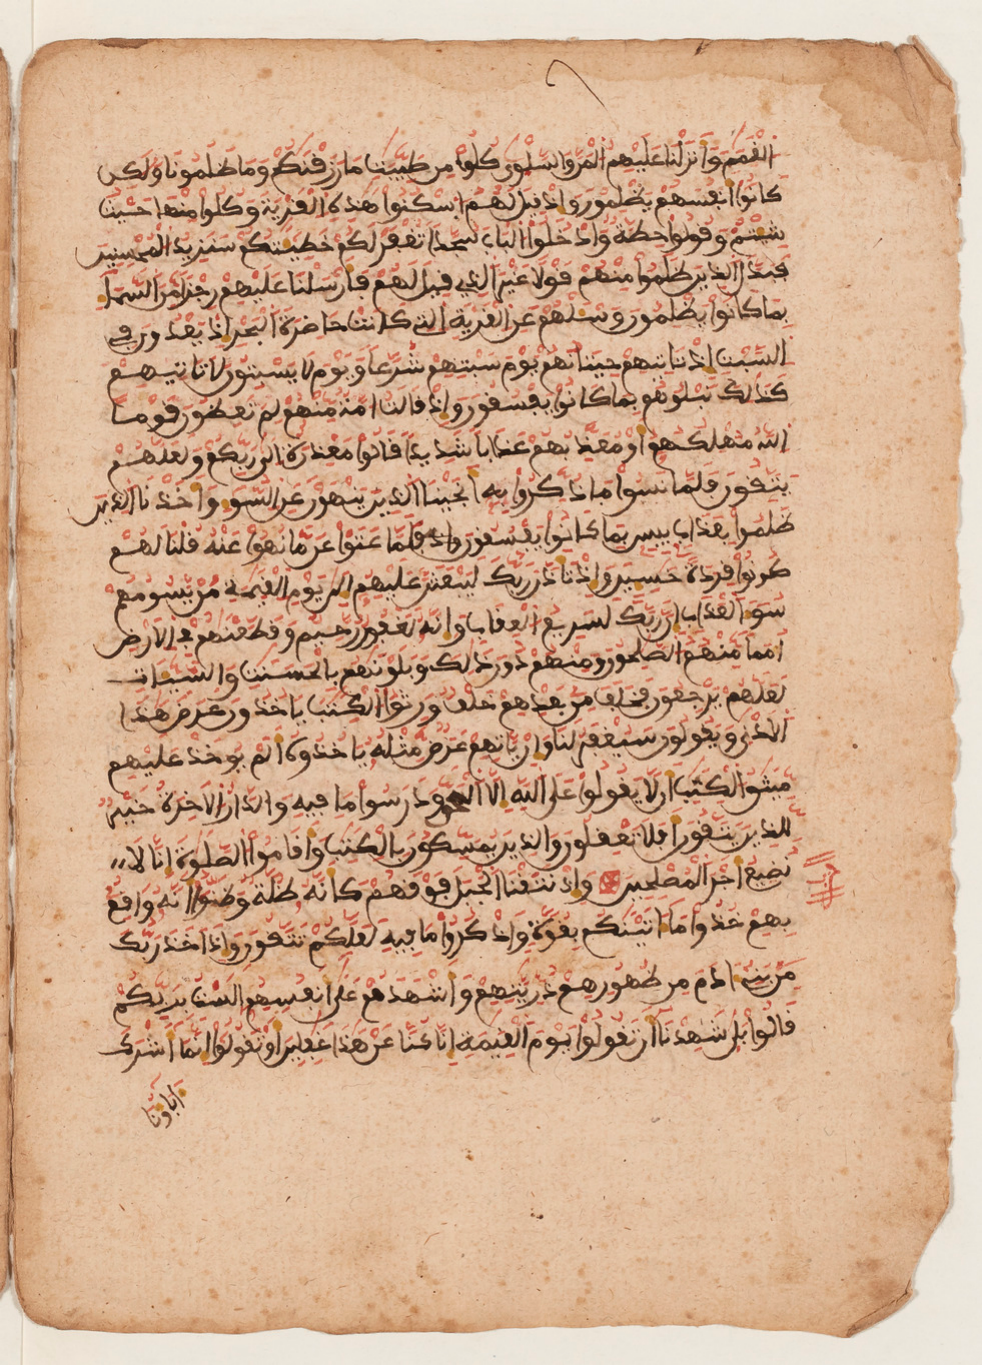 الغمم وأنزلنا عليهم المن والسلوى كلوا من طيبت ما رزقنكم وما ظلمونا ولكن
كانوا انفسهم يظلمون واذ قيل لهم اسكنوا هذه القرية وكلوا منها حيث
شيتم وقولوا حطة وادخلوا الباب سجدا تغفر لكم خطيتكم سنزيد المحسنين
فبدل الذين ظلموا منهم قولا غير الذي قيل لهم فارسلنا عليهم رجزا من السما
بما كانوا يظلمون وسلهم عن القرية التي كانت حاضرة البحر اذ يعدون في
السبت اذ تاتيهم حيتانهم يوم سبتهم شرعا ويوم لا يسبتون لا تاتيهم
كذلك نبلوهم بما كانوا يفسقون واذ قالت امة منهم لم تعظون قوما
الله مهلكهم او معذبهم عذابا شديدا قالوا معذرة الى ربكم ولعلهم
يتقون فلما نسوا ما ذكروا به انجينا الذين ينهون عن السوء واخذنا الذين
ظلموا بعذاب بيس بما كانوا يفسقون فلما عتوا عن ما نهوا عنه قلنا لهم
كونوا قردة خسين واذ تاذن ربك ليبعثن عليهم الى يوم القيمة من يسومهم
سوء العذاب ان ربك لسريع العقاب وانه لغفور رحيم وقطعنهم في الارض
امما منهم الصلحون ومنهم دون ذلك وبلونهم بالحسنت والسيات
لعلهم يرجعون فخلف من بعدهم خلف ورثوا الكتب ياخذون عرض هذا
الادنى ويقولون سيغفر لنا وان ياتهم عرض مثله ياخذوه الم يوخذ عليهم
ميثق الكتب ان لا يقولوا على الله الا الحق ودرسوا ما فيه والدار الاخرة خير
للذين يتقون افلا تعقلون والذين يمسكون بالكتب واقاموا الصلوة انا لا
نضيع اجر المصلحين واذ نتقنا الجبل فوقهم كانه ظلة وظنوا انه واقع
بهم خذوا ما اتينكم بقوة واذكروا ما فيه لعلكم تتقون واذ اخذ ربك
من بني ادم من ظهورهم ذريتهم واشهدهم على انفسهم الست بربكم
قالوا بلى شهدنا ان تقولوا يوم القيمة انا كنا عن هذا غفلين او تقولوا انما اشرك
اباونا